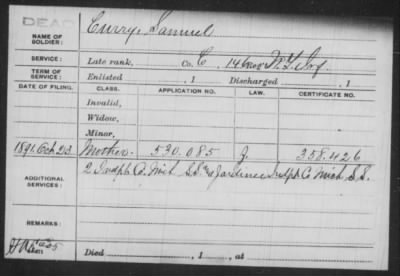 DEAD
NAME OF SOLDIER: Curry, Samuel
SERVICE: Late rank, Co. C, 146 Reg N.Y. Inf.
TERM OF SERVICE: Enlisted , 1 Discharged , 1
DATE OF FILING. CLASS. APPLICATION NO. LAW. CERTIFICATE NO.
Invalid,
Widow,
Minor,
1891. Oct. 23. Mother. 530.085 J. 358.426
ADDITIONAL SERVICES: 2 Indpt Co. Mich S.S. Indpt Co Mich S.S.
REMARKS:
Died , 1 , at